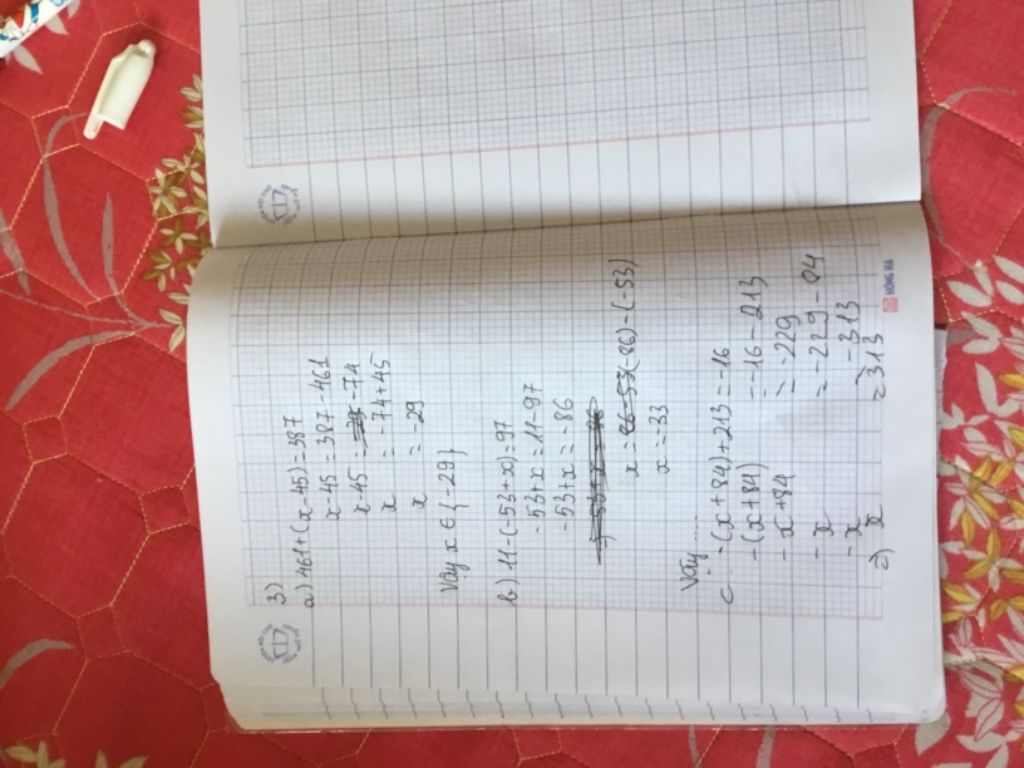 3)
a) 461+(x-45)=387
x-45 = 387-461
x-45 = -74
x = -74+45
x = -29
Vậy x ∈ {-29}
b) 11-(-53+x)=97
-53+x = 11-97
-53+x = -86
x = (-86)-(-53)
x = -33
Vậy .......
c -(x+84)+213 = -16
-(x+84) = -16-213
-x+84 = -229
-x = -229-84
-x = -313
=) x = 313
HỒNG HÀ